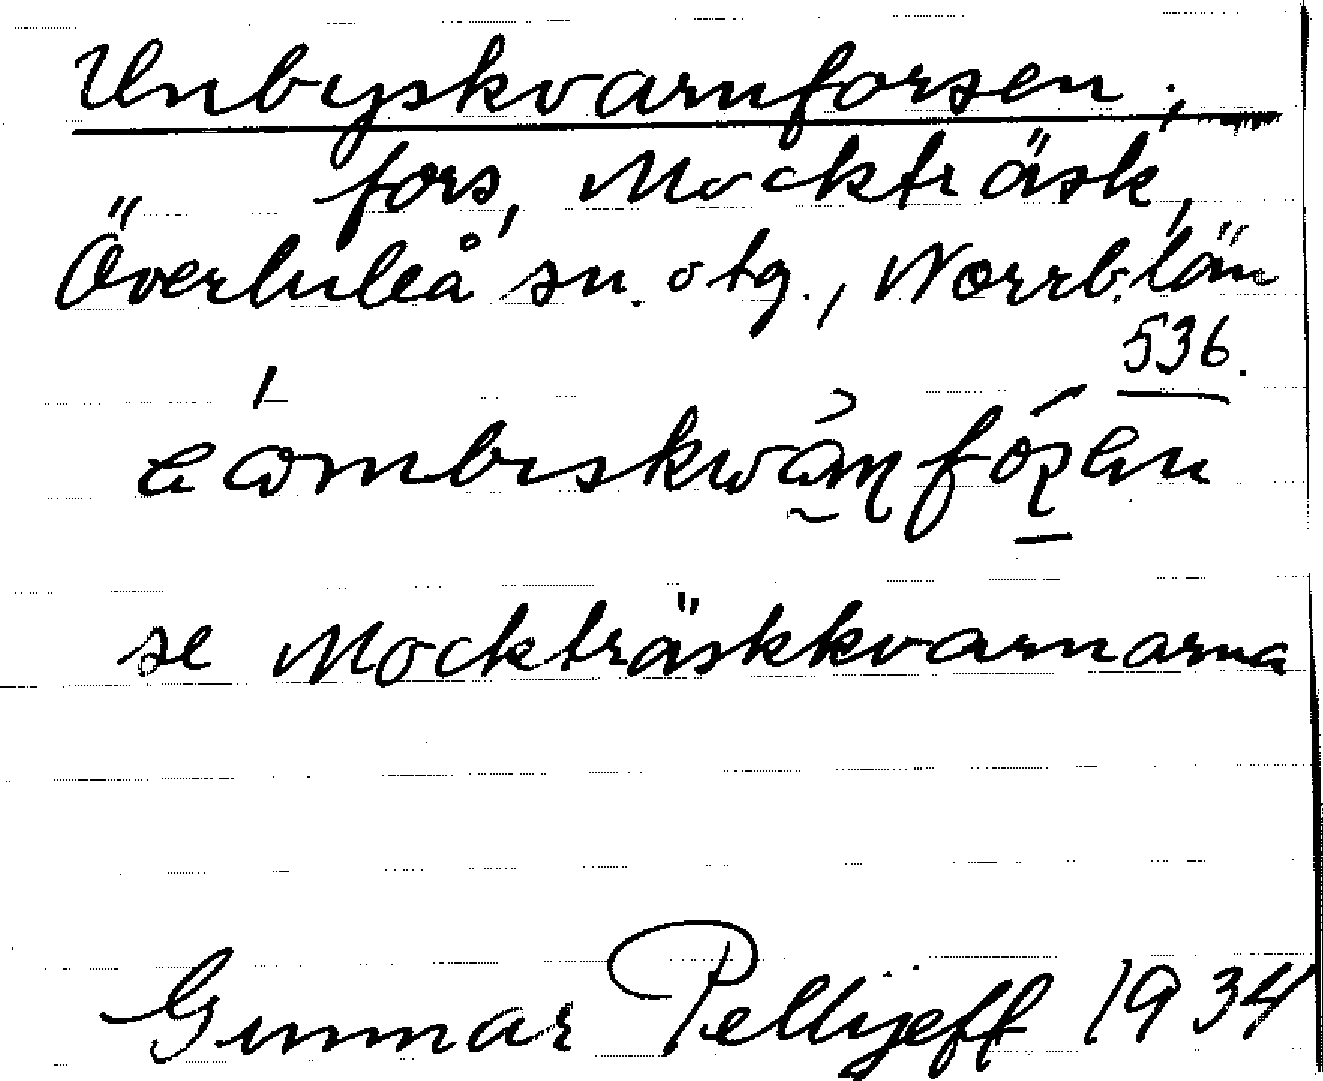 Unbyskvarnforsen;
fors, Mockträsk,
Överluleå sn. o tg., Norrb. län
536.
se Mockträskkvarnarna
Gunnar Pellijeff 1934